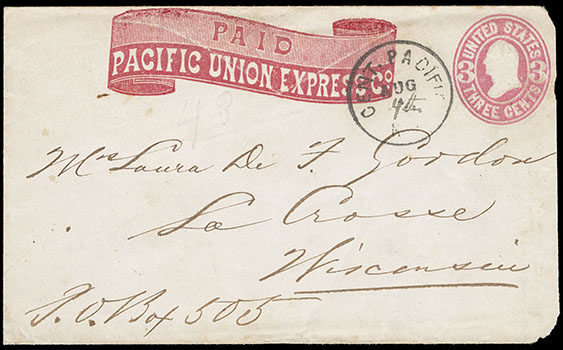 PAID
PACIFIC UNION EXPRESS Co
CENT. PACIFIC
AUG
4th
UNITED STATES
3 3
THREE CENTS
Mrs Laura De F. Gordon
La Crosse
Wisconsin
P.O. Box 505